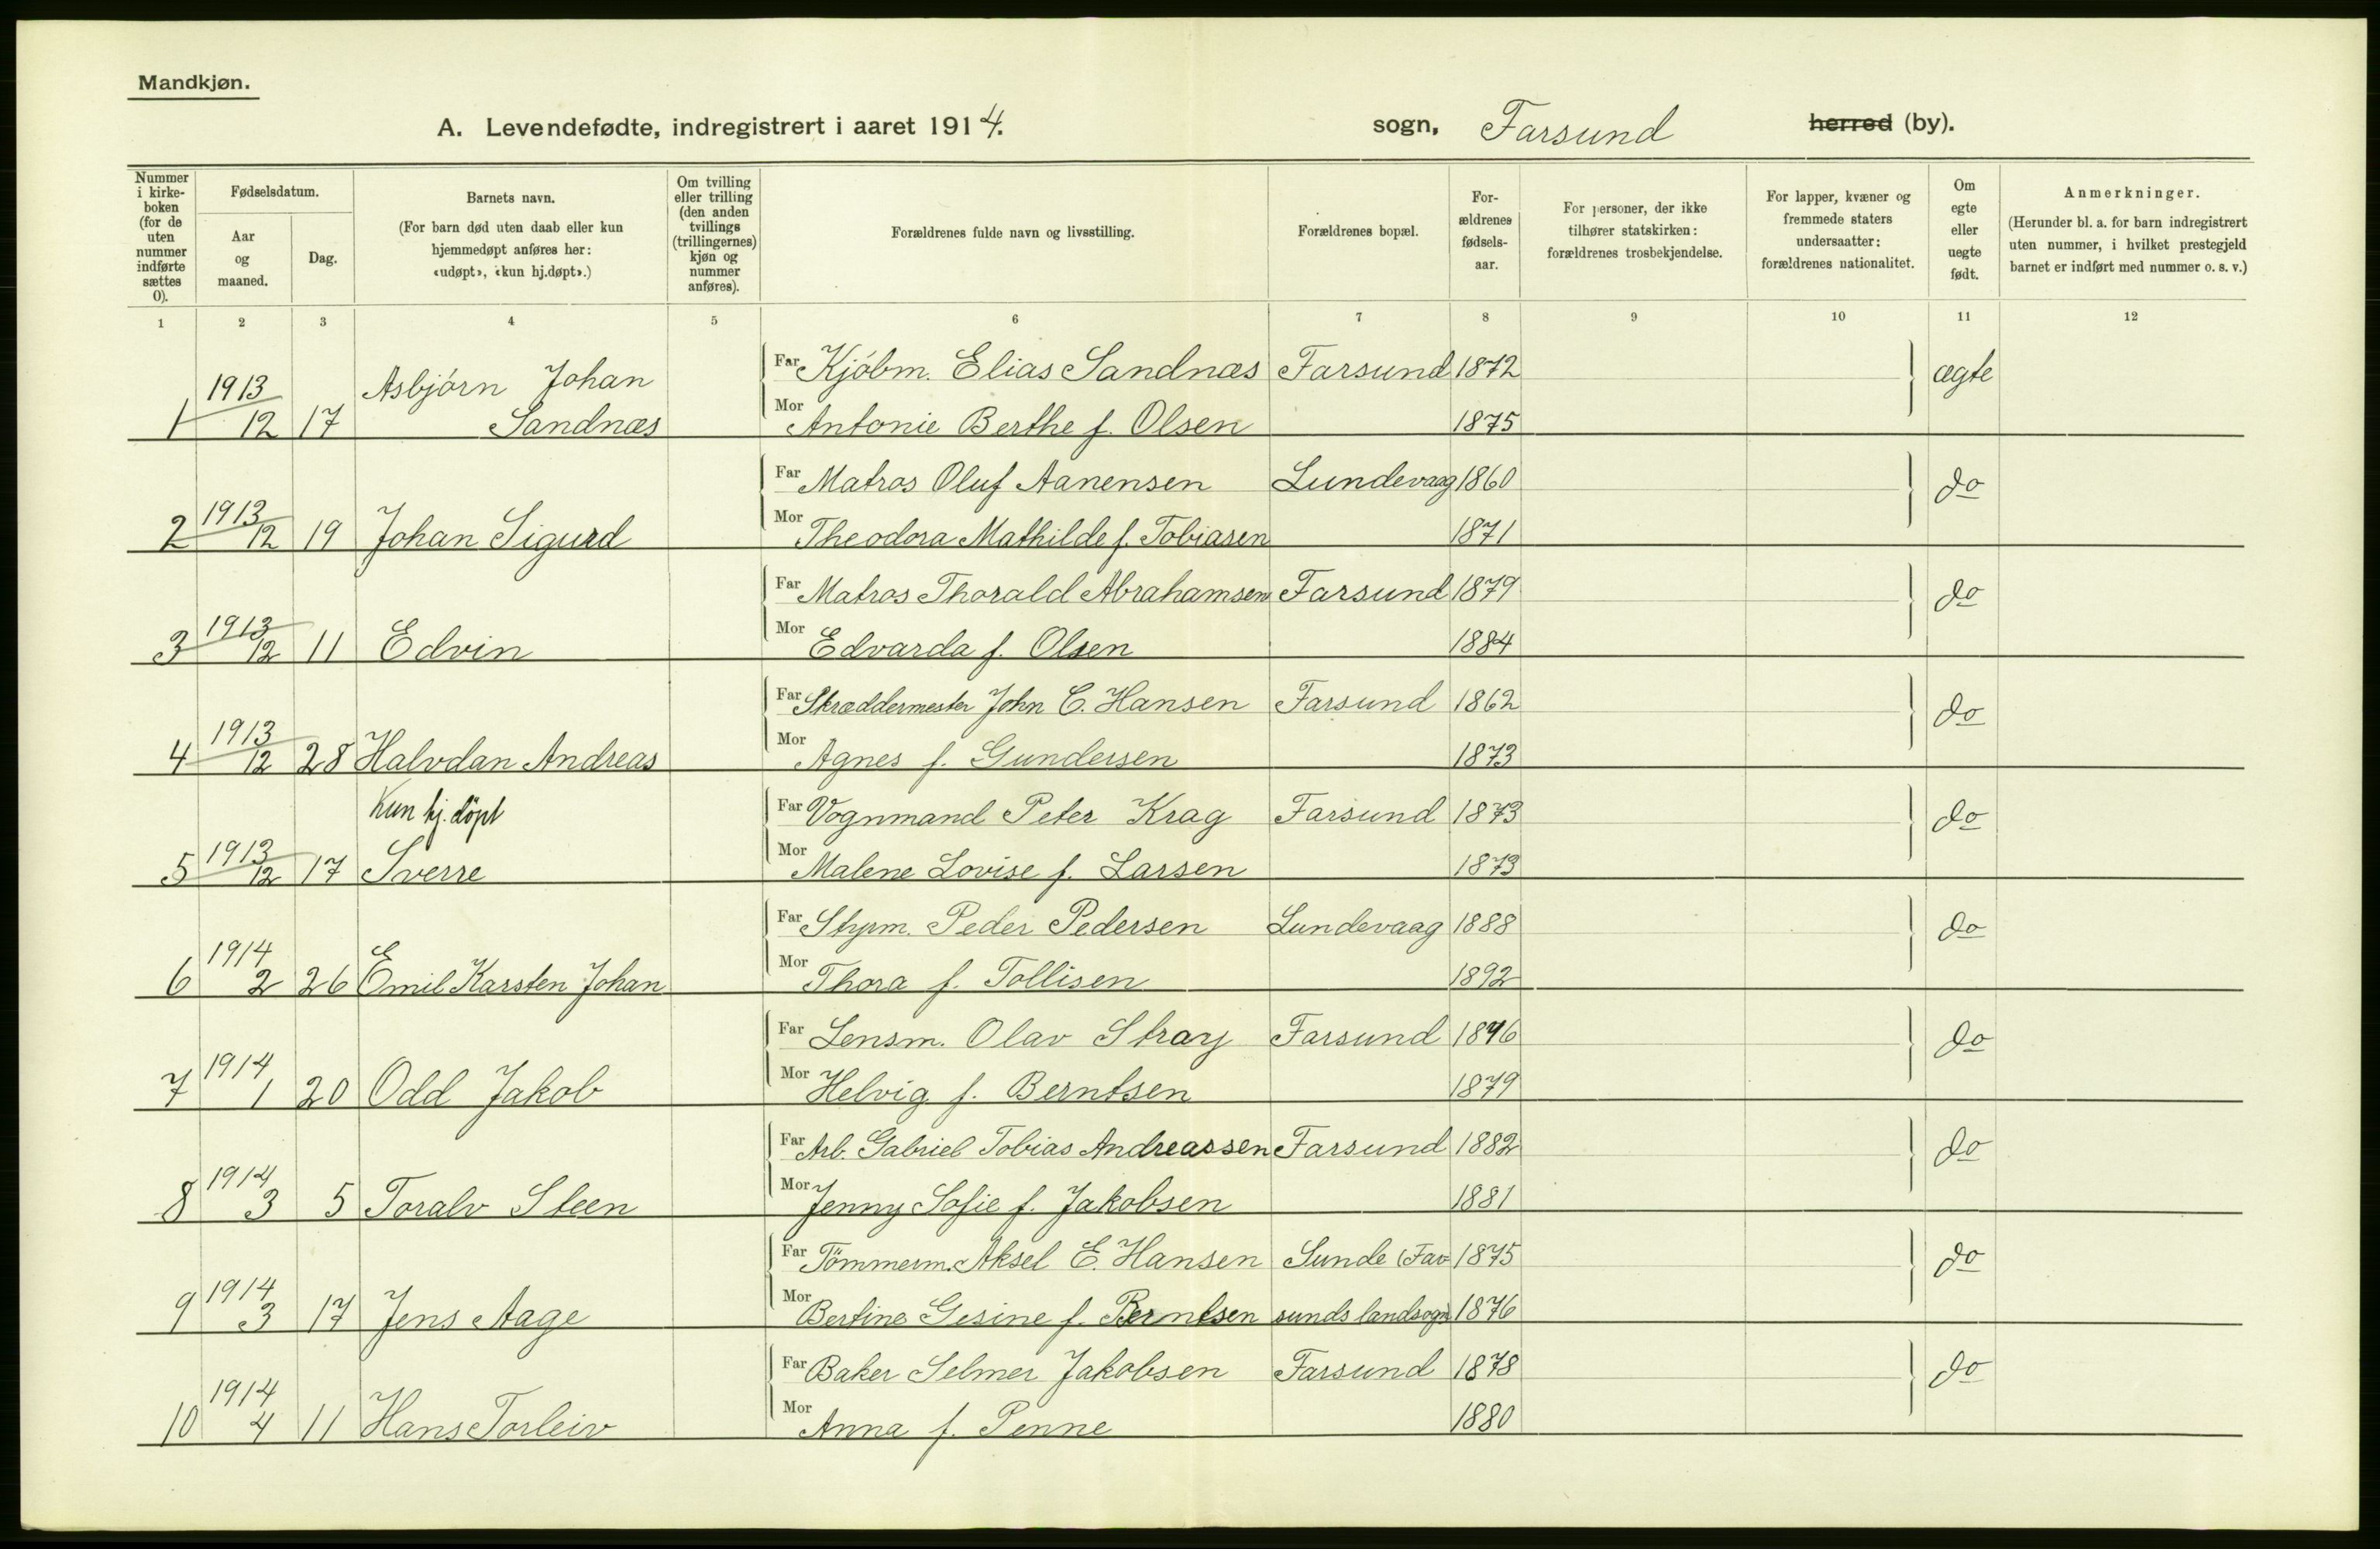 Mandkjøn.
A. Levendefødte, indregistrert i aaret 1914. sogn, Farsund herred (by).
Nummer i kirke-boken (for de uten nummer indførte sættes 0).
Fødselsdatum.
Aar og maaned.
Dag.
Barnets navn.
(For barn død uten daab eller kun hjemmedøpt anføres her: «udøpt», «kun hj.døpt».)
Om tvilling eller trilling (den anden tvillings (trillingernes) kjøn og nummer anføres).
Forældrenes fulde navn og livsstilling.
Forældrenes bopæl.
For-ældrenes fødsels-aar.
For personer, der ikke tilhører statskirken: forældrenes trosbekjendelse.
For lapper, kvæner og fremmede staters undersaatter: forældrenes nationalitet.
Om egte eller uegte født.
Anmerkninger.
(Herunder bl. a. for barn indregistrert uten nummer, i hvilket prestegjeld barnet er indført med nummer o. s. v.)
1 2 3 4 5 6 7 8 9 10 11 12
1913 Asbjörn Johan Far Kjöbm. Elias Sandnæs Farsund 1872 ægte
1 12 17 Sandnæs Mor Antonie Berthe f. Olsen 1875
Far Matros Oluf Aanensen Lundevaag 1860 do
2 1913 12 19 Johan Sigurd Mor Theodora Mathilde f. Tobiasen 1871
Far Matros Thorald Abrahamsen Farsund 1879 do
3 1913 12 11 Edvin Mor Edvarda f. Olsen 1884
Far Skræddermester John C. Hansen Farsund 1862 do
4 1913 12 28 Halvdan Andreas Mor Agnes f. Gundersen 1873
Kun hj. döpt Far Vognmand Peter Krag Farsund 1873 do
5 1913 12 17 Sverre Mor Malene Lovise f. Larsen 1873
Far Styrm. Peder Pedersen Lundevaag 1888 do
6 1914 2 26 Emil Karsten Johan Mor Thora f. Tollisen 1892
Far Lensm. Olav Stray Farsund do
7 1914 1 20 Odd Jakob Mor Helvig f. Berntsen 1879
Far Arb. Gabriel Tobias Andreassen Farsund 1882 do
8 1914 3 5 Toralv Steen Mor Jenny Sofie f. Jakobsen 1881
Far Tömmerm. Aksel E. Hansen Sunde (Far- 1875 do
9 1914 3 17 Jens Aage Mor Bertine Gesine f. Berntsen sunds landsogn 1876
Far Baker Selmer Jakobsen Farsund 1878 do
10 1914 4 11 Hans Torleiv Mor Anna f. Penne 1880